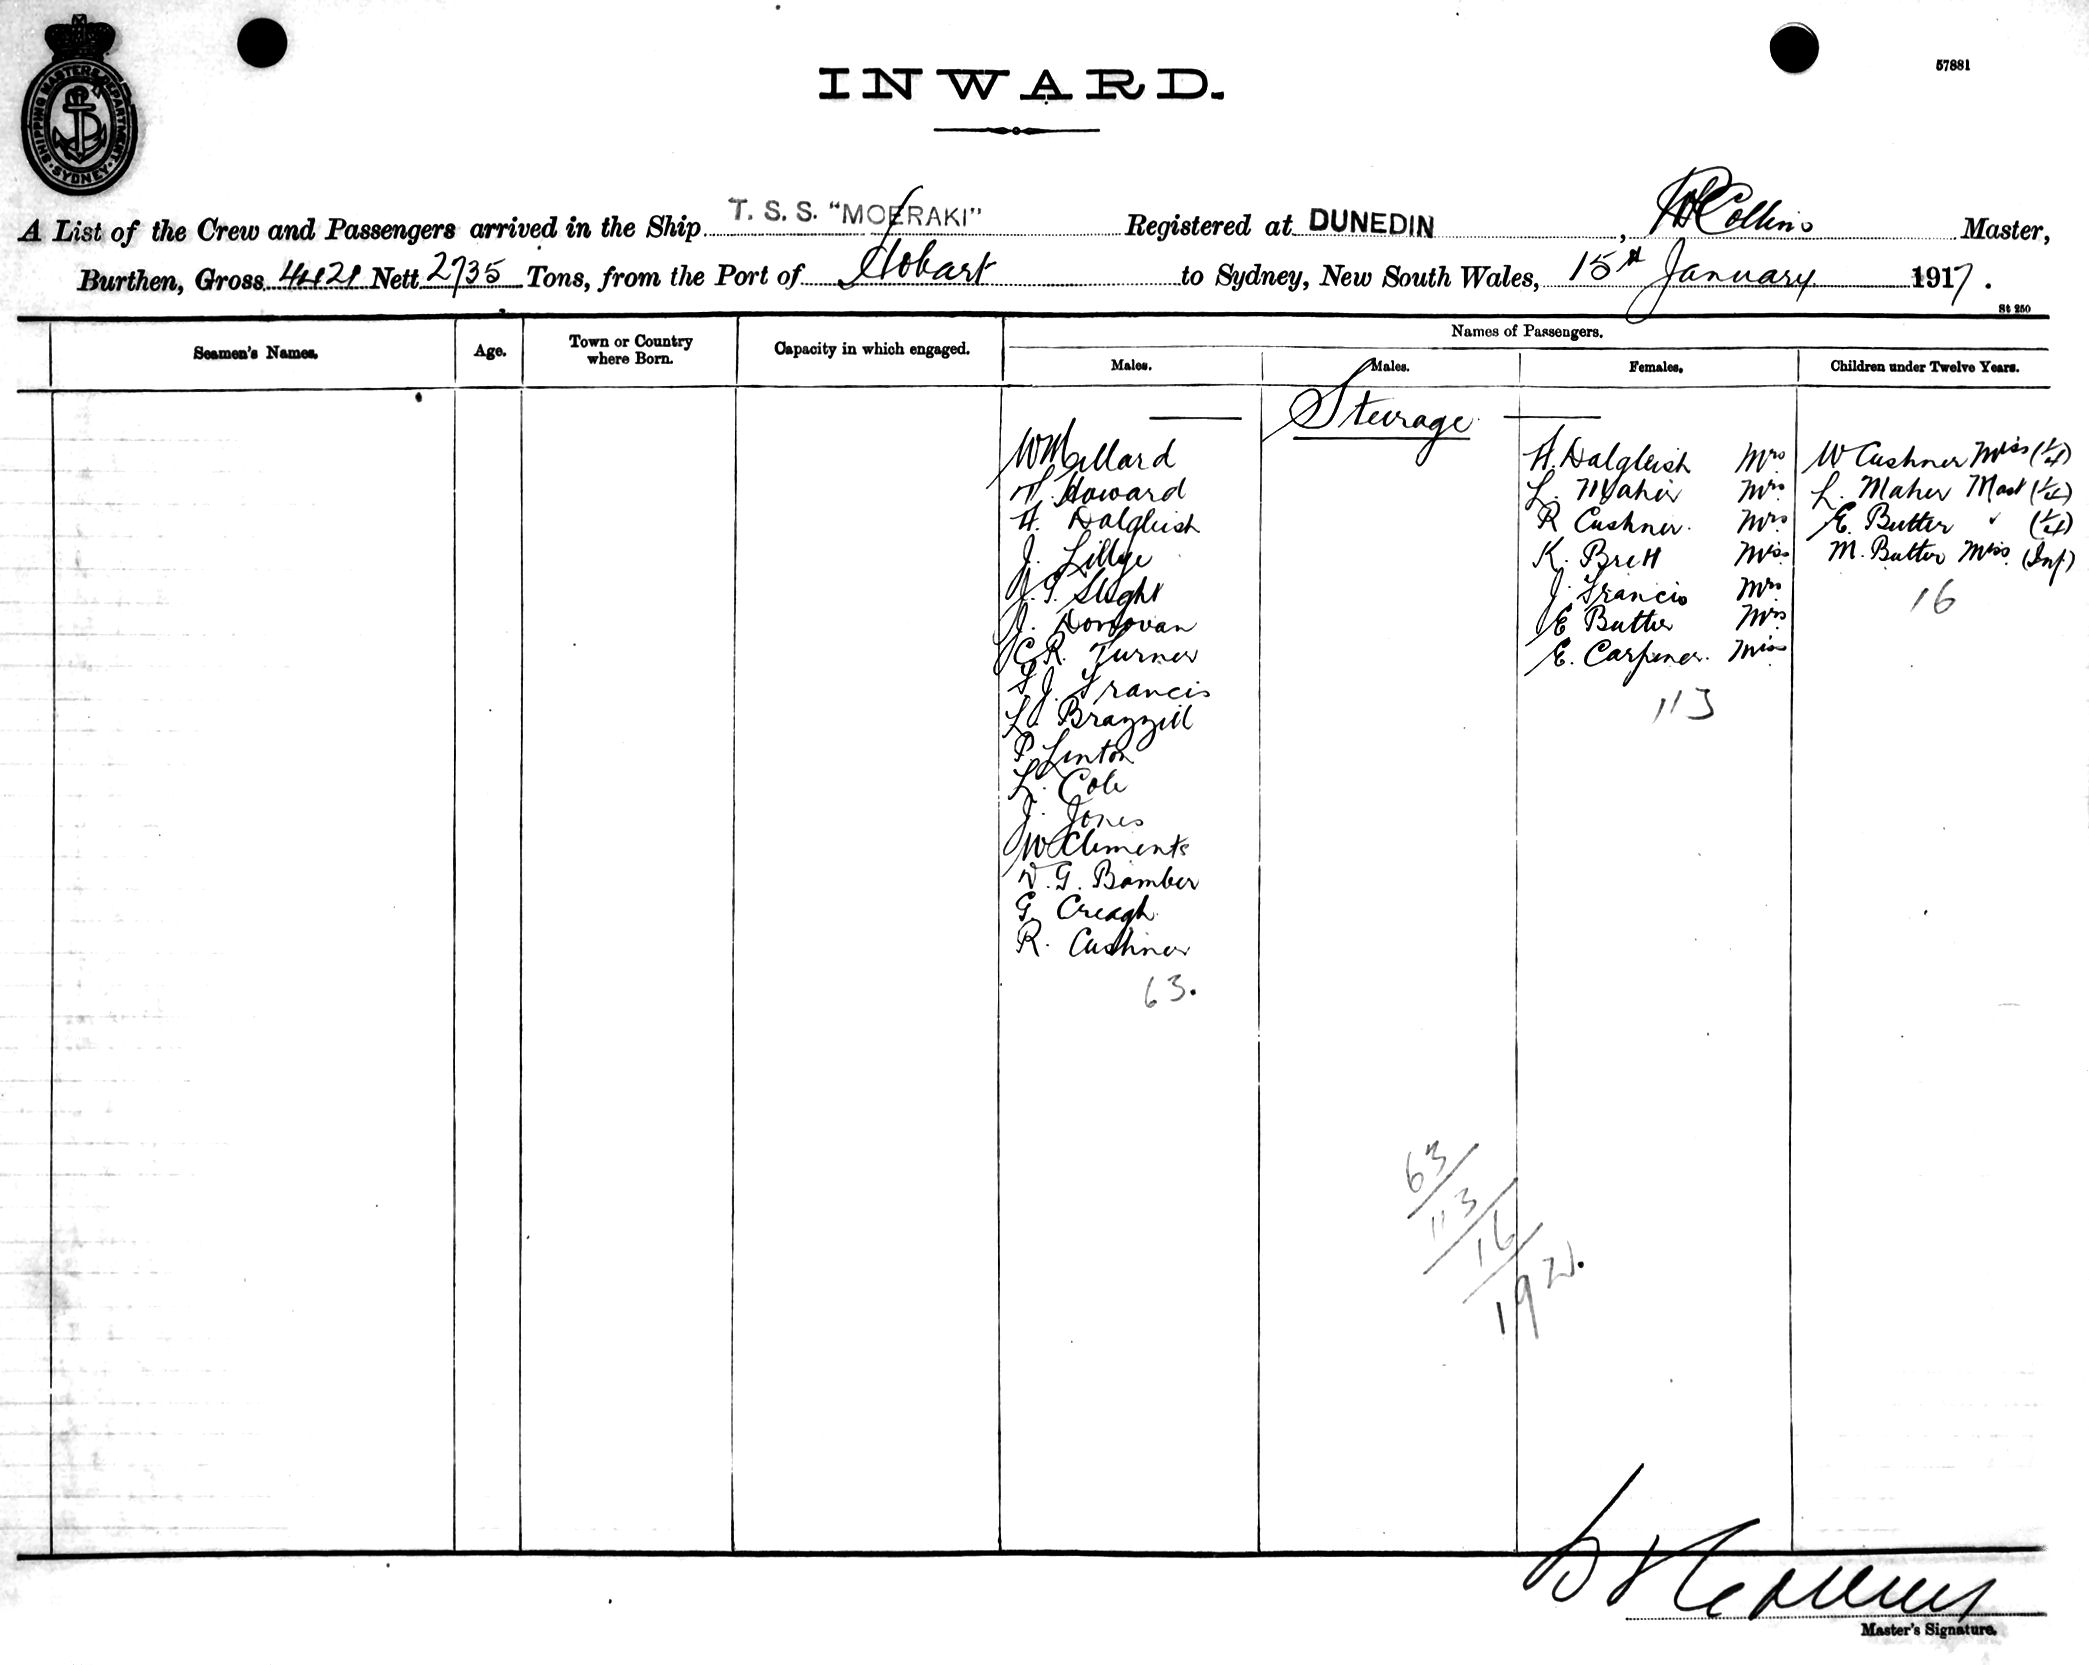 57881
SHIPPING MASTERS DEPARTMENT SYDNEY
INWARD.
A List of the Crew and Passengers arrived in the Ship T. S. S. "MOERAKI" Registered at DUNEDIN, Collins Master,
Burthen, Gross 4421 Nett 2735 Tons, from the Port of Hobart to Sydney, New South Wales, 15th January 1917.
St 250
Seamen's Names. Age. Town or Country where Born. Capacity in which engaged. Names of Passengers.
Males. Males. Females. Children under Twelve Years.
Steerage
W Millard
H. Howard
H. Dalgleish
J. Lillye
J. G. Slight
J. Donovan
C R. Turner
J. Francis
L. Brazzill
P Linton
L. Cole
J. Jones
W Clements
W. G. Bamber
G. Creagh
R. Cushner
63.
H. Dalgleish Mrs
L. Maher Mrs
R Cushner. Mrs
K. Brett Miss
J. Francis Mrs
E Butter Mrs
E. Carpener. Miss
113
W Cushner Miss (1/2)
L. Maher Mast (1/2)
E. Butter " (1/2)
M. Butter Miss. (Inf)
16
63
113
16
192.
Master's Signature.